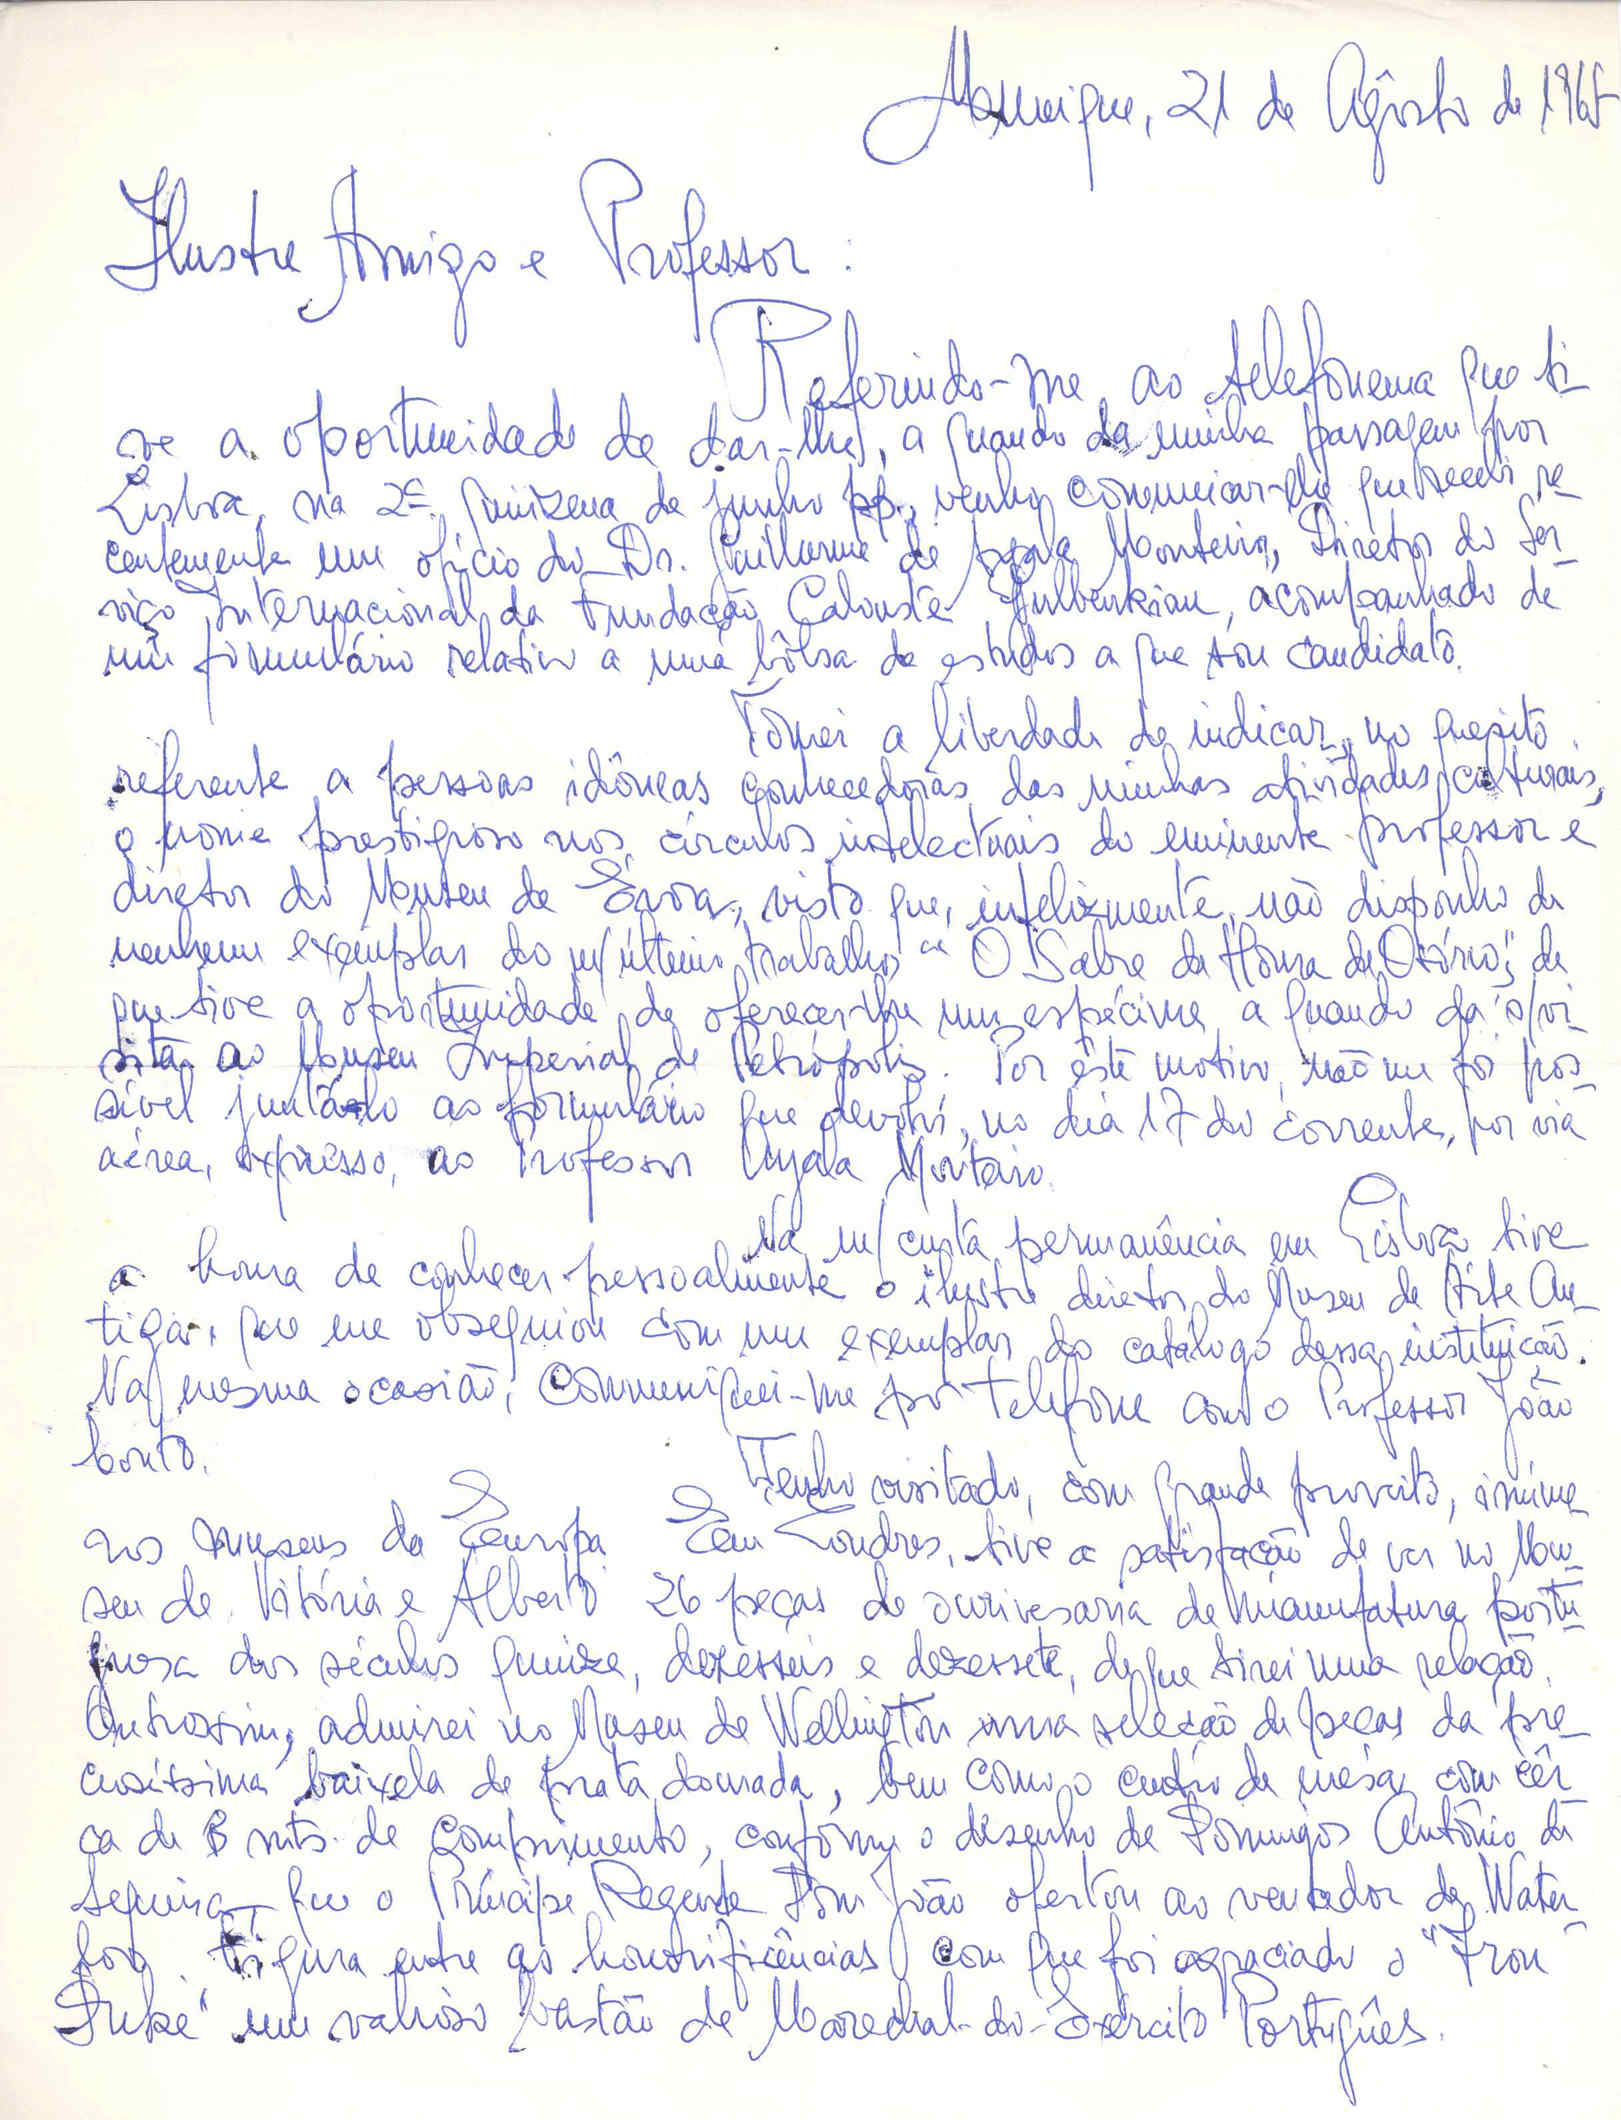 Munique, 21 de Agôsto de 1965
Ilustre Amigo e Professor:
Referindo-me ao telefonema que ti-
ve a oportunidade de dar-lhe, a quando da minha passagem por
Lisboa, na 2ª quinzena de junho pp., venho comunicar-lhe que recebi re-
centemente um ofício do Dr. Guilherme de Ayala Monteiro, Diretor do Ser-
viço Internacional da Fundação Calouste Gulbenkian, acompanhado de
um formulário relativo a uma bôlsa de estudos a que sou candidato.
Tomei a liberdade de indicar, no quesito
referente a pessoas idôneas conhecedoras das minhas atividades culturais,
o nome prestigioso nos círculos intelectuais do eminente professor e
diretor do Museu de Évora, visto que, infelizmente, não disponho de
nenhum exemplar do m/último trabalho "O Sabre de Honra de Osório", de
que tive a oportunidade de oferecer-lhe um espécime, a quando da s/vi-
sita ao Museu Imperial de Petrópolis. Por êste motivo, não me foi pos-
sível juntá-lo ao formulário que devolvi, no dia 17 do corrente, por via
aérea, expresso, ao Professor Ayala Monteiro.
Na m/curta permanência em Lisboa tive
a honra de conhecer pessoalmente o ilustre diretor do Museu de Arte An-
tiga, que me obsequiou com um exemplar do catálogo dessa instituição.
Na mesma ocasião, comuniquei-me por telefone com o Professor João
Couto.
Tenho visitado, com grande proveito, inúme-
ros museus da Europa. Em Londres, tive a satisfação de ver no Mu-
seu de Vitória e Alberto 26 peças de ourivesaria de manufatura portu-
guesa dos séculos quinze, dezesseis e dezessete, de que tirei uma relação.
Outrossim, admirei no Museu de Wellington uma seleção de peças da pre-
ciosíssima baixela de prata dourada, bem como o centro de mesa com cêr-
ca de 8 mts. de comprimento, conforme o desenho de Domingos Antônio de
Sequeira, que o Príncipe Regente Dom João ofertou ao vencedor de Water-
loo. Figura entre as honorificências com que foi agraciado o "Iron
Duke" um valioso bastão de Marechal-do-Exército Português.